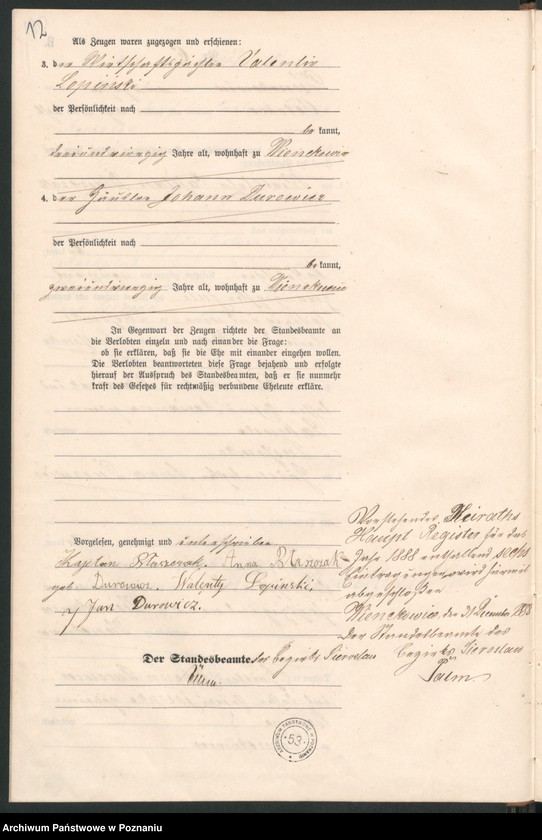 12
Als Zeugen waren zugezogen und erschienen:
3. der Wirtschaftspächter Valentin
Lopinski
der Persönlichkeit nach
be kannt,
dreiundvierzig Jahre alt, wohnhaft zu Wienckowie
4. der Häusler Johann Durowicz
der Persönlichkeit nach
be kannt,
zweiundvierzig Jahre alt, wohnhaft zu Wienckowie
In Gegenwart der Zeugen richtete der Standesbeamte an
die Verlobten einzeln und nach einander die Frage:
ob sie erklären, daß sie die Ehe mit einander eingehen wollen.
Die Verlobten beantworteten diese Frage bejahend und erfolgte
hierauf der Ausspruch des Standesbeamten, daß er sie nunmehr
kraft des Gesetzes für rechtmäßig verbundene Eheleute erkläre.
Vorgelesen, genehmigt und unterschrieben
Anna
geb. Durowicz. Walenty Lopinski,
Jan Durowicz.
Der Standesbeamte des Bezirks
Vorstehendes Heiraths
Haupt Register für das
Jahr 1888 enthaltend sechs
Eintragungen wird hiermit
abgeschlossen
den 31 Dezember 1888
Der Standesbeamte des
Bezirks
ARCHIWUM PAŃSTWOWE W POZNANIU
53
Archiwum Państwowe w Poznaniu